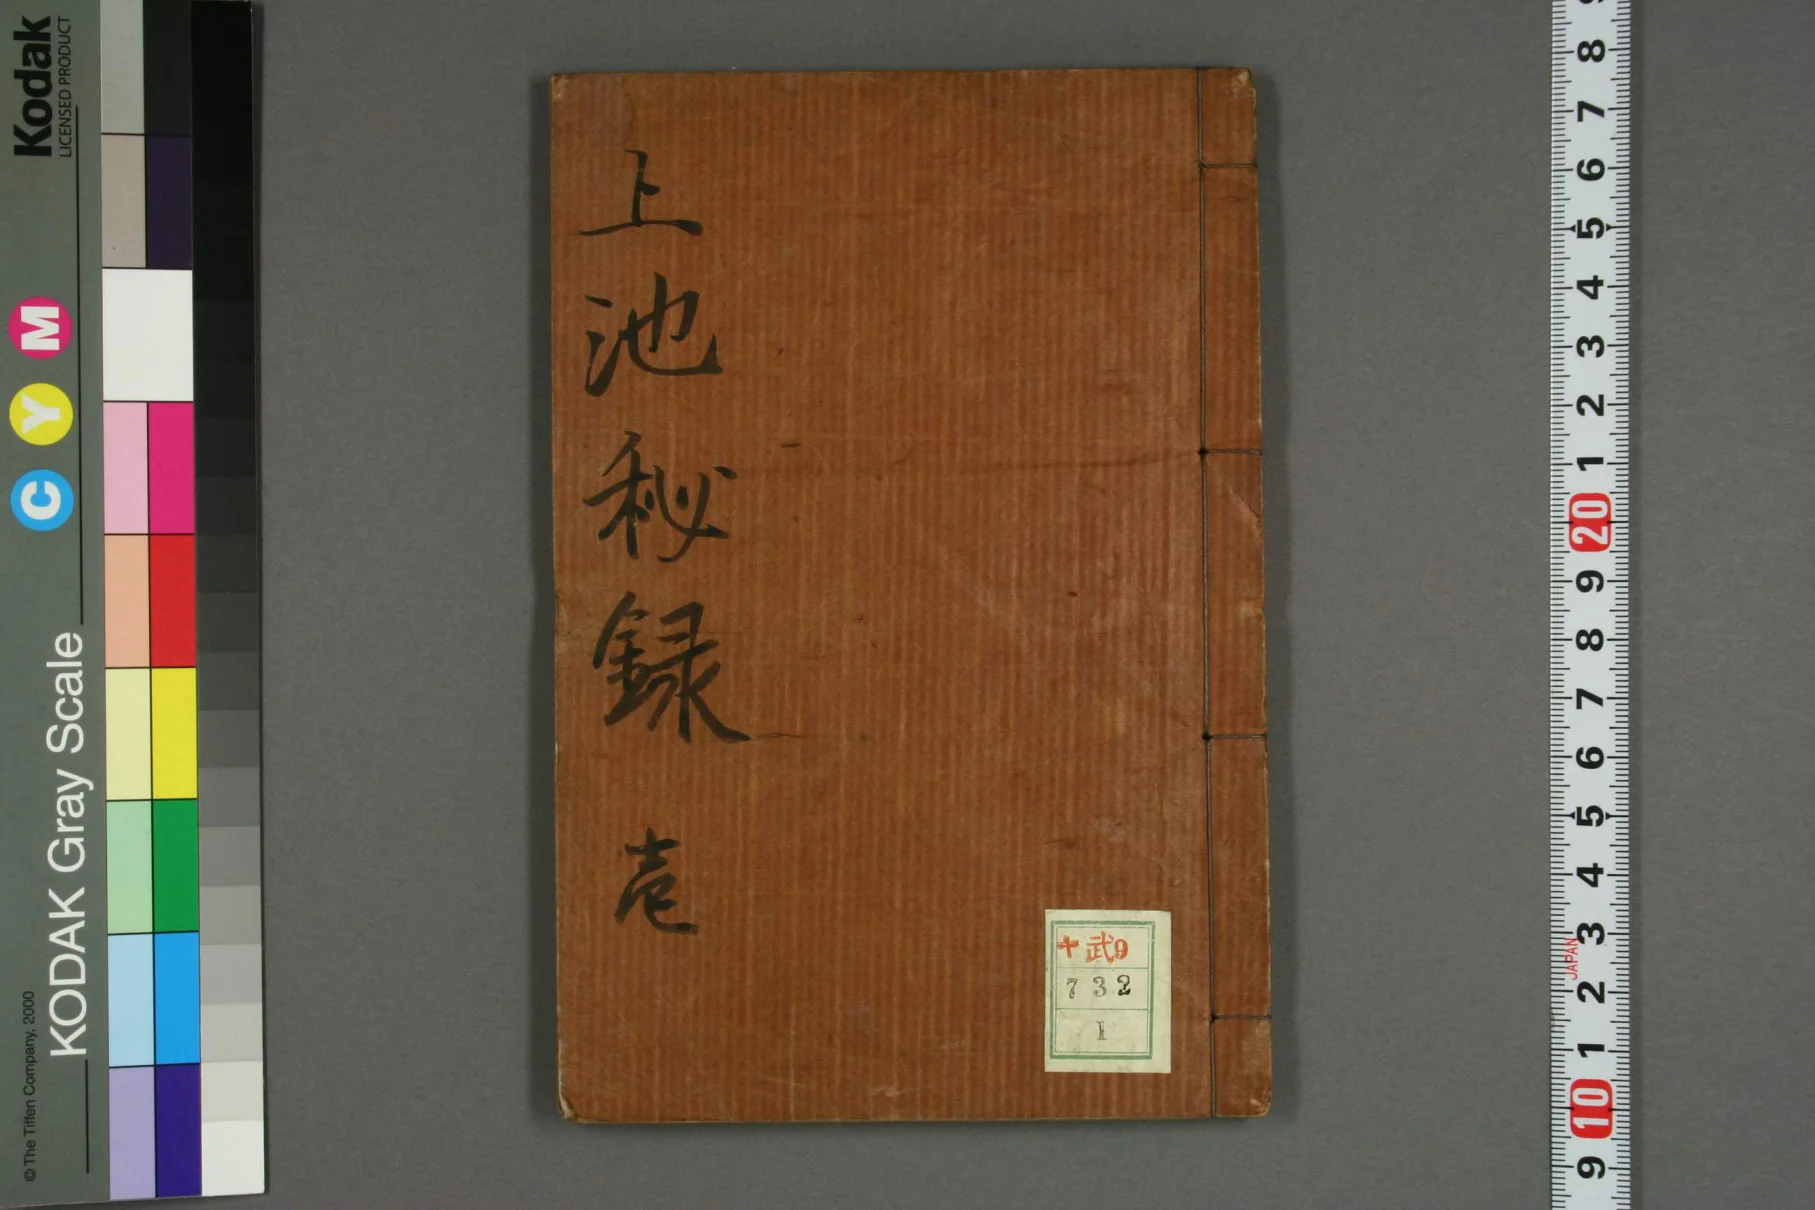 上池秘録 壱
十武9
732
1
Kodak
LICENSED PRODUCT
C Y M
KODAK Gray Scale
© The Tiffen Company, 2000
8
7
6
5
4
3
2
1
20
9
8
7
6
5
4
3
JAPAN
2
1
10
9